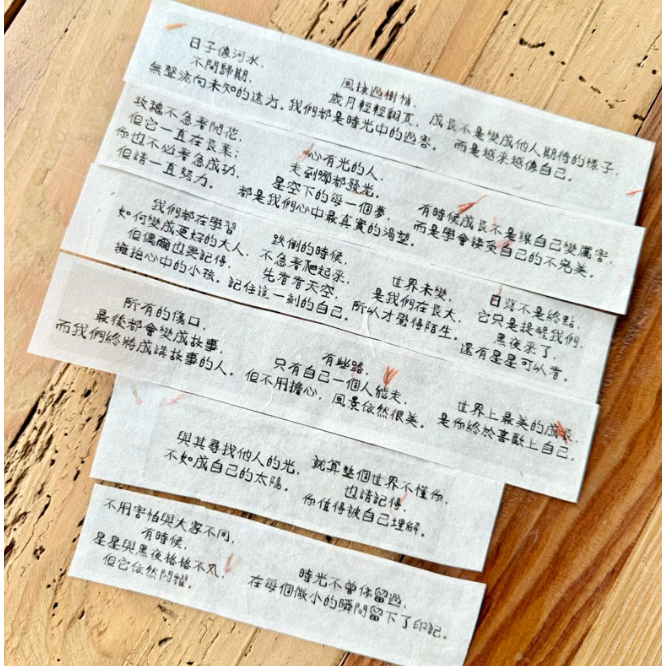 日子像河水,
不問歸期,
無聲流向未知的遠方。
風掠過樹梢,
歲月輕輕翻頁,
我們都是時光中的過客。
成長不是變成他人期待的樣子,
而是越來越像自己。
玫瑰不急著開花,
但它一直在長葉;
你也不必著急成功,
但請一直努力。
心有光的人,
走到哪都發光。
星空下的每一個夢,
都是我們心中最真實的渴望。
有時候成長不是讓自己變厲害,
而是學會接受自己的不完美。
我們都在學習
如何變成更好的大人,
但偶爾也要記得,
擁抱心中的小孩。
跌倒的時候,
不急著爬起來,
先看看天空,
記住這一刻的自己。
世界未變,
是我們在長大,
所以才覺得陌生。
日落不是終點,
它只是提醒我們,
黑夜來了,
還有星星可以看。
所有的傷口,
最後都會變成故事,
而我們終將成講故事的人。
有些路,
只有自己一個人能走,
但不用擔心,風景依然很美。
世界上最美的成長,
是你終於喜歡上自己。
與其尋找他人的光,
不如成自己的太陽。
就算整個世界不懂你,
也請記得,
你值得被自己理解。
不用害怕與大家不同,
有時候,
星星與黑夜格格不入,
但它依然閃耀。
時光不曾停留過,
在每個微小的瞬間留下了印記。